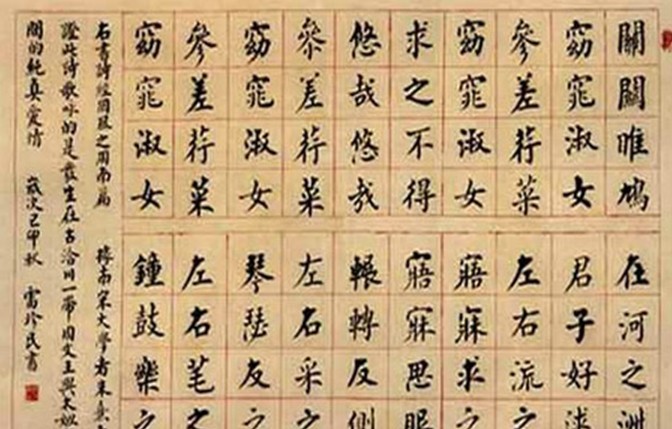 關關雎鳩在河之洲
窈窕淑女君子好逑
參差荇菜左右流之
窈窕淑女寤寐求之
求之不得寤寐思服
悠哉悠哉輾轉反側
參差荇菜左右采之
窈窕淑女琴瑟友之
參差荇菜左右芼之
窈窕淑女鍾鼓樂之
右書詩經國風之周南篇 據南宋大學者朱熹
證此詩歌咏的是發生在古洽川一帶周文王與太姒
間的純真愛情 歲次己卯秋 雷珍民書